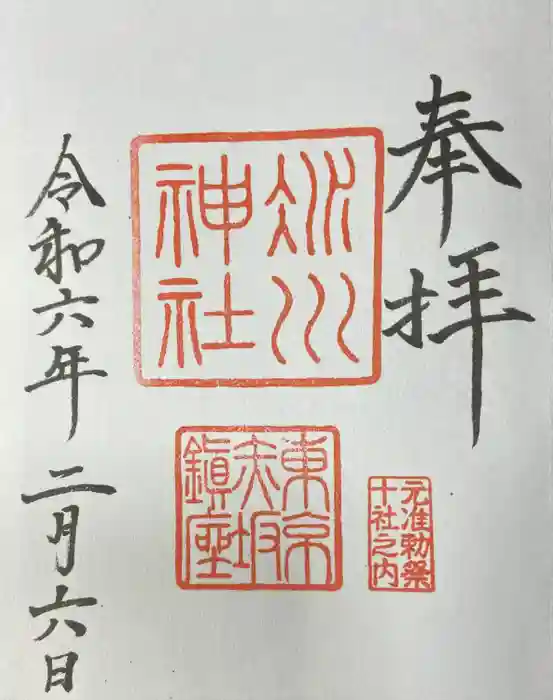 奉拝
氷川
神社
東京
赤坂
鎮座
元准勅祭
十社之内
令和六年二月六日